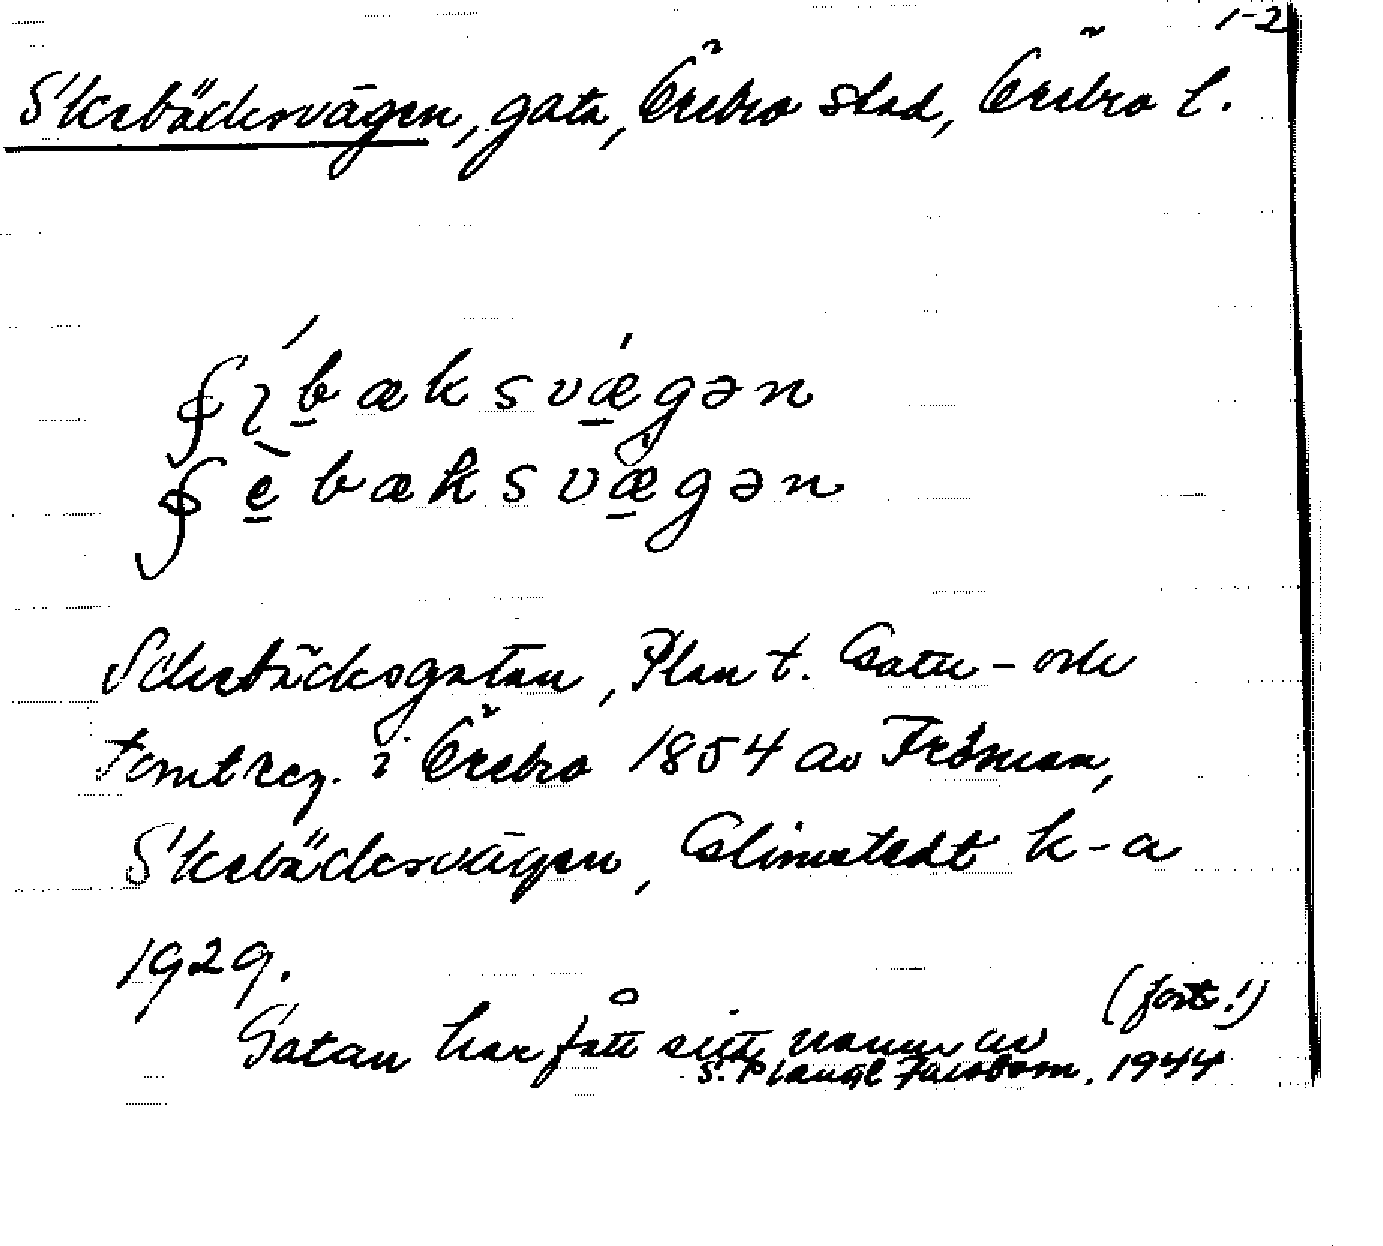 1-2
Skebäcksvägen, gata, Örebro stad, Örebro l.
bæksvægən
bæksvægən
Schebäcksgatan, Plan t. Gatu- och
Tomtreg. i Örebro 1854 av Fröman,
Skebäcksvägen, Glimstedt k-a
1929.
(forts.!)
Gatan har fått sitt namn av
S. Jacobson. 1944